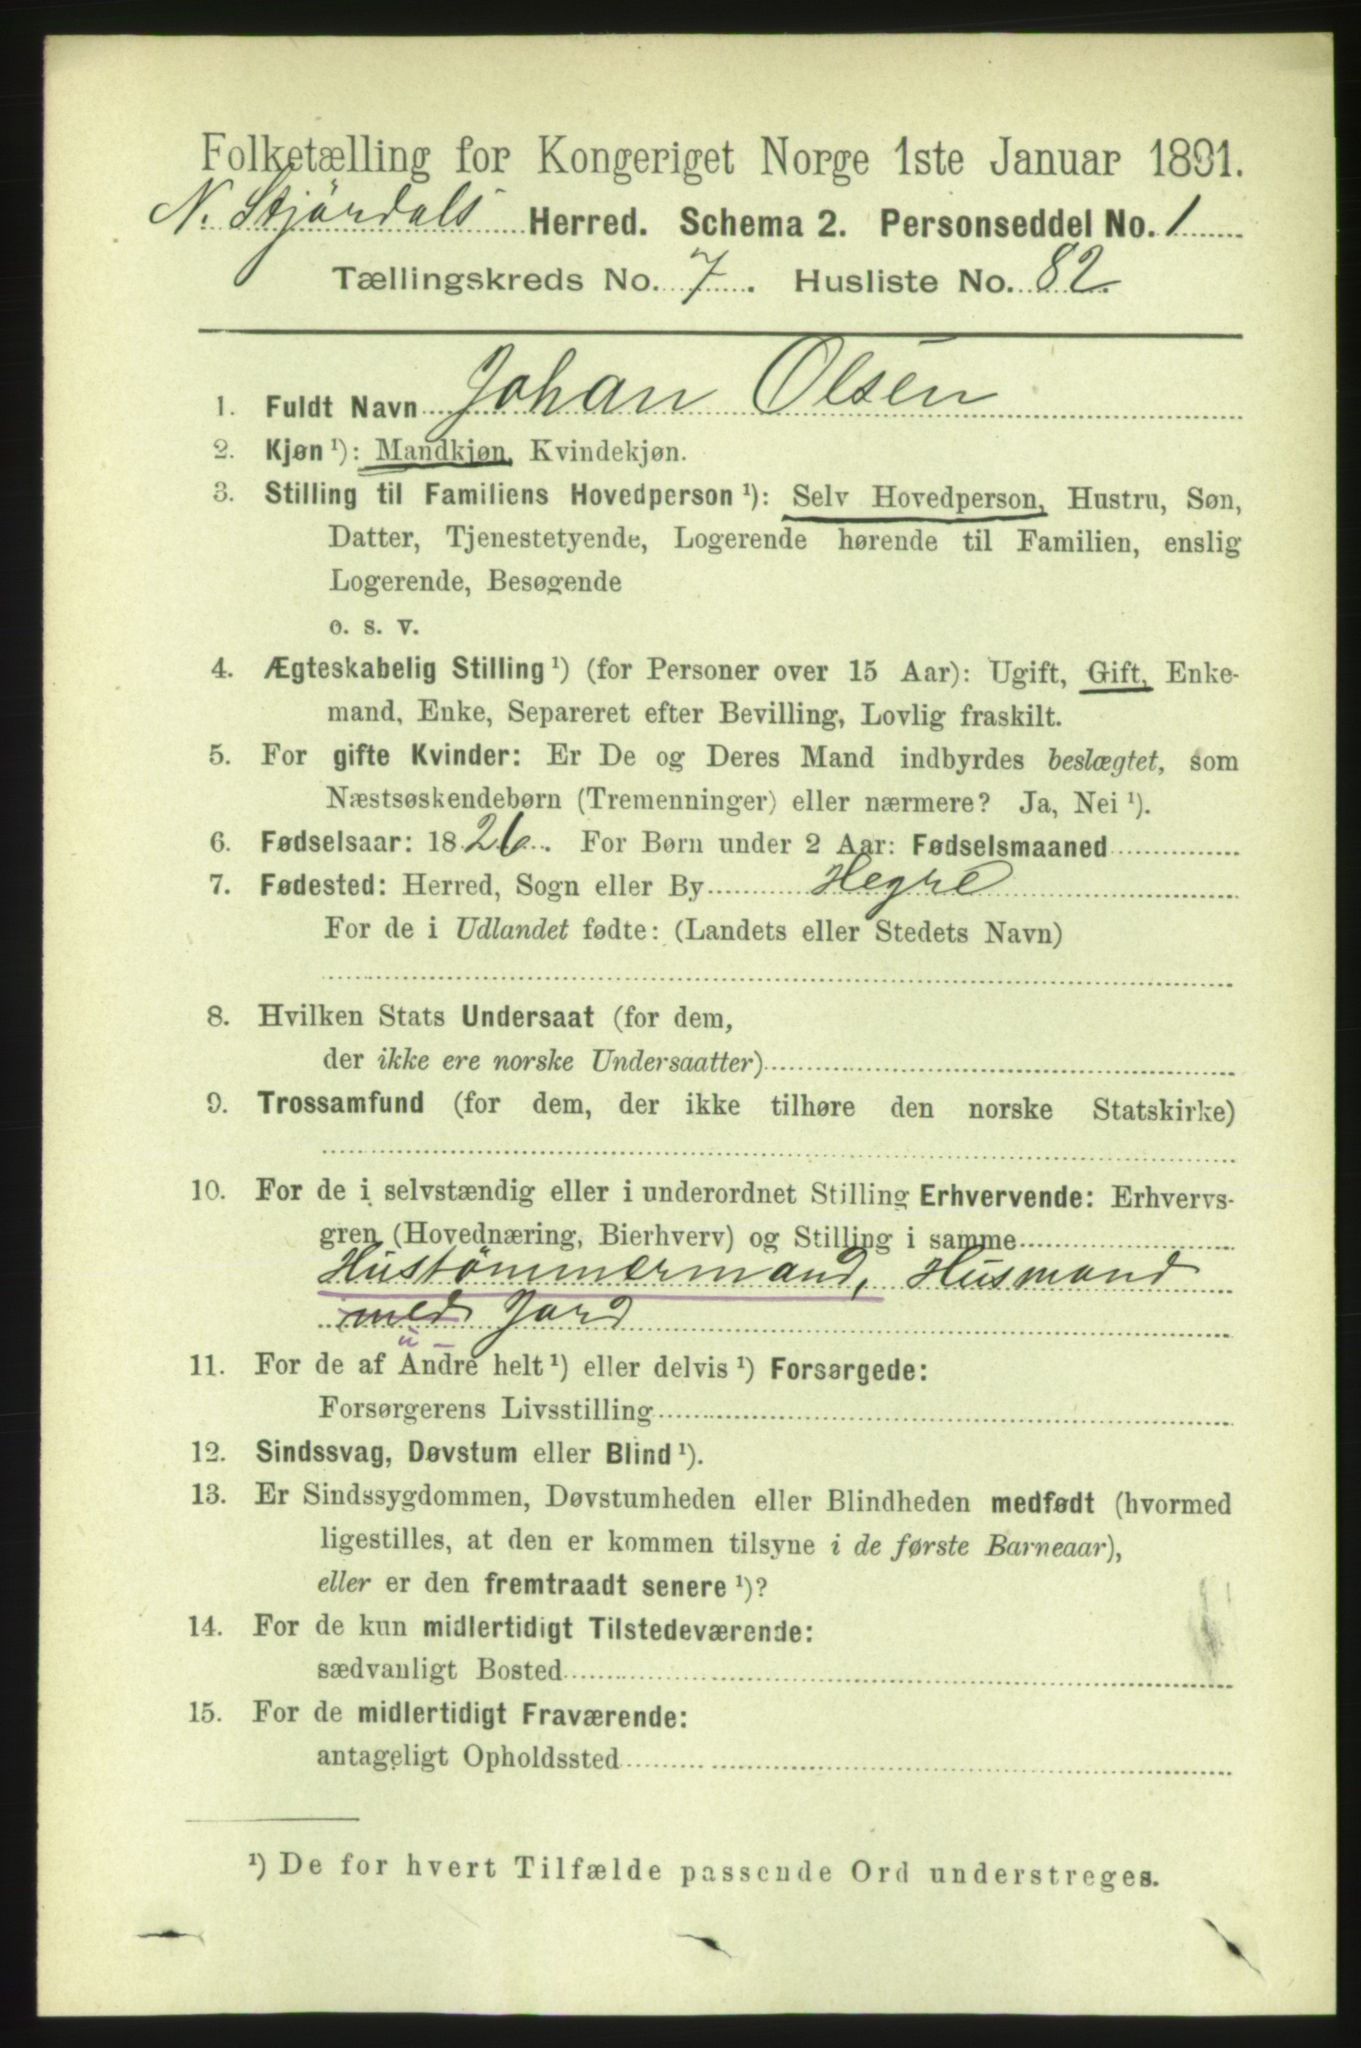 Folketælling for Kongeriget Norge 1ste Januar 1891.
N. Stjördals Herred. Schema 2. Personseddel No. 1
Tællingskreds No. 7. Husliste No. 82
1. Fuldt Navn Johan Olsen
2. Kjøn ¹): Mandkjøn, Kvindekjøn.
3. Stilling til Familiens Hovedperson ¹): Selv Hovedperson, Hustru, Søn,
Datter, Tjenestetyende, Logerende hørende til Familien, enslig
Logerende, Besøgende
o. s. v.
4. Ægteskabelig Stilling ¹) (for Personer over 15 Aar): Ugift, Gift, Enke-
mand, Enke, Separeret efter Bevilling, Lovlig fraskilt.
5. For gifte Kvinder: Er De og Deres Mand indbyrdes beslægtet, som
Næstsøskendebørn (Tremenninger) eller nærmere? Ja, Nei ¹).
6. Fødselsaar: 1826. For Børn under 2 Aar: Fødselsmaaned
7. Fødested: Herred, Sogn eller By Hegre
For de i Udlandet fødte: (Landets eller Stedets Navn)
8. Hvilken Stats Undersaat (for dem,
der ikke ere norske Undersaatter)
9. Trossamfund (for dem, der ikke tilhøre den norske Statskirke)
10. For de i selvstændig eller i underordnet Stilling Erhvervende: Erhvervs-
gren (Hovednæring, Bierhverv) og Stilling i samme
Hustömmermand, Husmand
med Jord
11. For de af Andre helt ¹) eller delvis ¹) Forsørgede:
Forsørgerens Livsstilling
12. Sindssvag, Døvstum eller Blind ¹).
13. Er Sindssygdommen, Døvstumheden eller Blindheden medfødt (hvormed
ligestilles, at den er kommen tilsyne i de første Barneaar),
eller er den fremtraadt senere ¹)?
14. For de kun midlertidigt Tilstedeværende:
sædvanligt Bosted
15. For de midlertidigt Fraværende:
antageligt Opholdssted
¹) De for hvert Tilfælde passende Ord understreges.